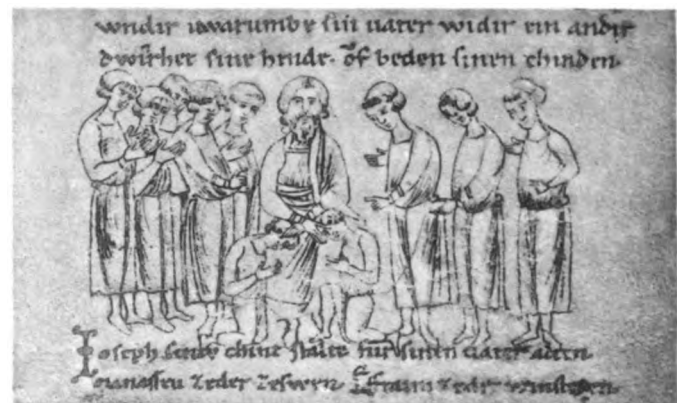 wndir uwarumbe sin uater widir ein andir
sine hende. of beden sinen chinden.
Ioseph chint stalte fur sinen uater alten
manassen zeder zeswen Effraim zeder